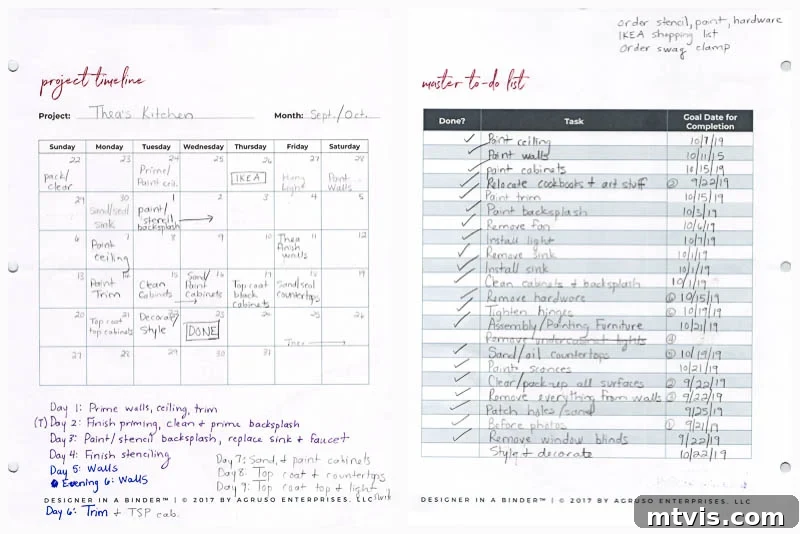 project timeline
Project: Thea's Kitchen Month: Sept./Oct.
Sunday Monday Tuesday Wednesday Thursday Friday Saturday
22 23 24 25 26 27 28
pack/ clear
Prime/ Paint
IKEA
Hang Light
Paint Walls
29 30 1 2 3 4 5
Sand/seal sink
paint/ stencil backsplash
6 7 8 9 10 11 12
Paint ceiling
Thea finish walls
13 14 15 16 17 18 19
Paint Trim
Clean Cabinets
Sand/ Paint cabinets
Top coat black cabinets
Sand/seal countertops
20 21 22 23 24 25 26
Top coat top cabinets
Decorate/ Style
DONE
27 28 29 30 31
Day 1: Prime walls, ceiling, trim
(T) Day 2: Finish priming, clean & prime backsplash
Day 3: Paint/stencil backsplash, replace sink & faucet
Day 4: Finish stenciling
Day 5: Walls
Evening 6: Walls
Day 6: Trim & TSP cab.
Day 7: Sand, & paint cabinets
Day 8: Top coat & countertops
Day 9: Top coat top & light
DESIGNER IN A BINDER™ | © 2017 BY AGRUSO ENTERPRISES, LLC
order stencil, paint, hardware
IKEA shopping list
Order swag clamp
master to-do list
Done? Task Goal Date for Completion
Paint ceiling 10/7/19
Paint walls 10/11/15
paint cabinets 10/15/19
Relocate cookbooks & art stuff ② 9/22/19
Paint trim 10/15/19
Paint backsplash 10/3/19
Remove fan 10/6/19
Install light 10/7/19
Remove sink 10/1/19
Install sink 10/1/19
Clean cabinets & backsplash 10/1/19
Remove hardware 10/15/19
Tighten hinges 10/19/19
Assembly/Painting Furniture 10/21/19
Remove undercabinet lights
Sand/oil countertops 10/19/19
Paint sconces 10/21/19
Clear/pack-up all surfaces ② 9/22/19
Remove everything from walls 9/22/19
Patch holes/sand 9/25/19
Before photos ① 9/21/19
Remove window blinds 9/22/19
Style & decorate 10/22/19
DESIGNER IN A BINDER™ | © 2017 BY AGRUSO ENTERPRISES, LLC
mtvis.com